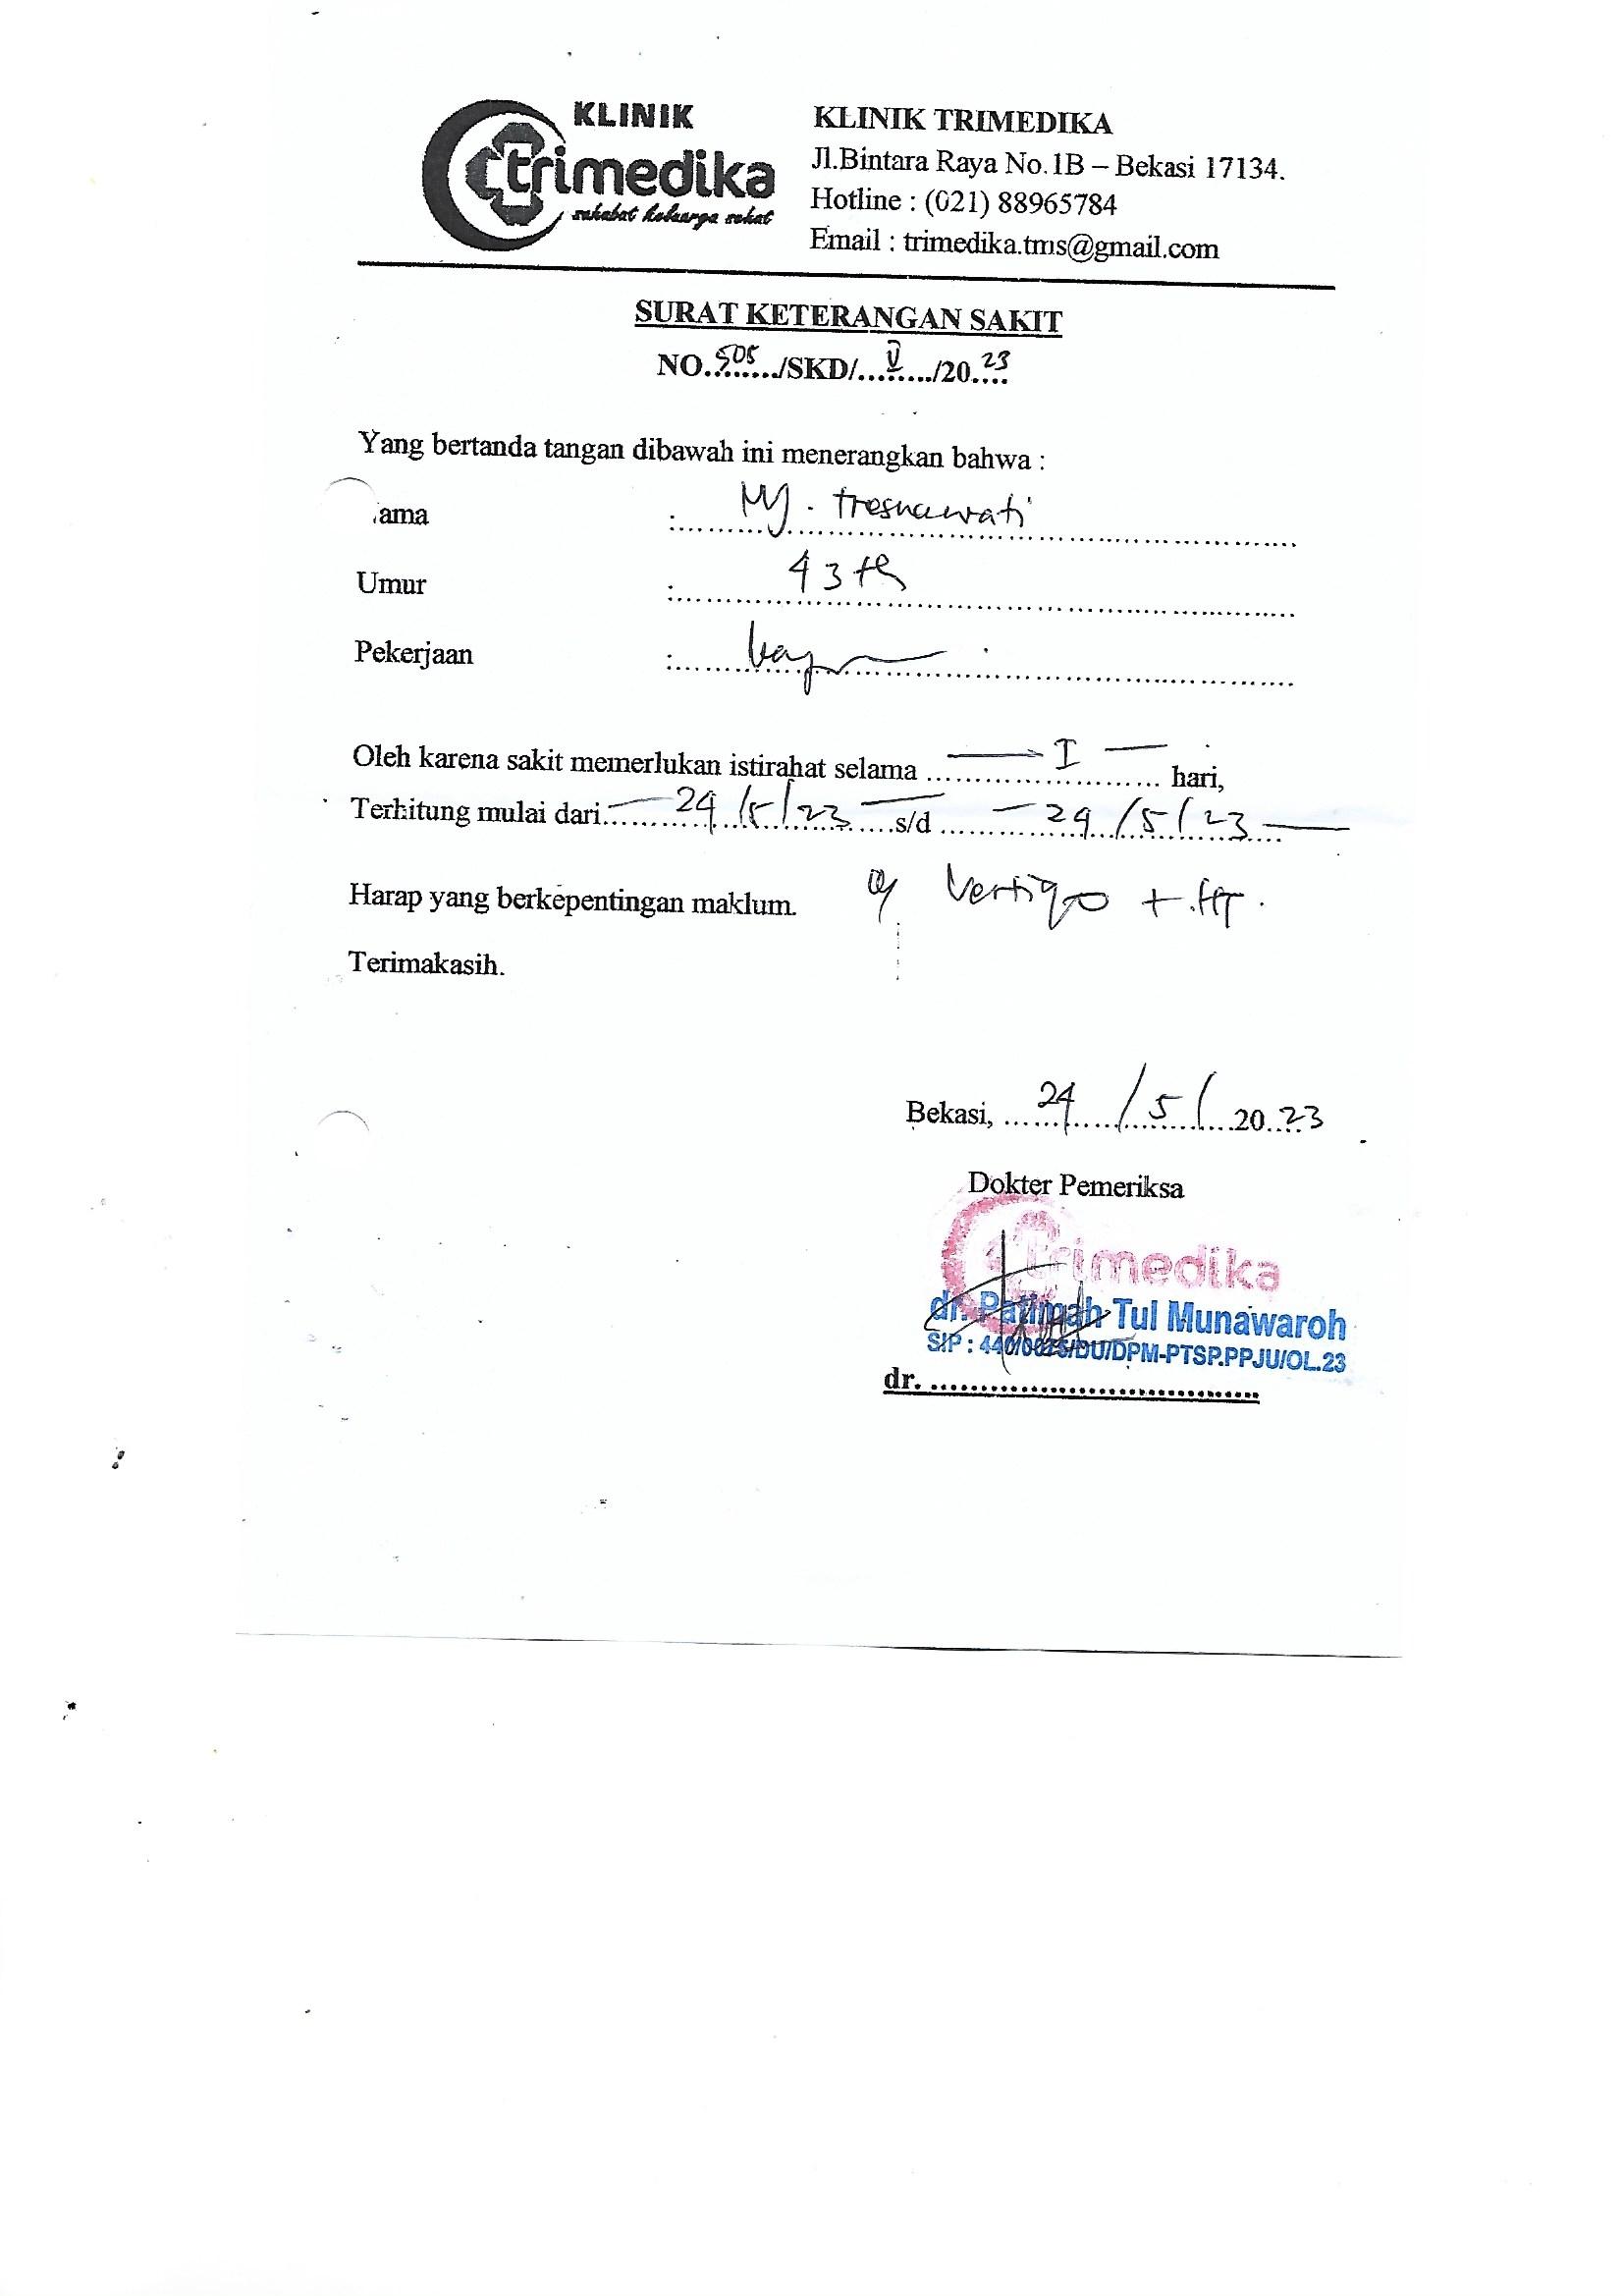 KLINIK
trimedika
sahabat keluarga sehat
KLINIK TRIMEDIKA
Jl.Bintara Raya No.1B – Bekasi 17134.
Hotline : (021) 88965784
Email : trimedika.tms@gmail.com
SURAT KETERANGAN SAKIT
NO. 505 /SKD/ V /20 23
Yang bertanda tangan dibawah ini menerangkan bahwa :
ama : Ny. Tresnawati
Umur : 43 th
Pekerjaan :
Oleh karena sakit memerlukan istirahat selama I hari,
Terhitung mulai dari 24/5/23 s/d 24/5/23
Harap yang berkepentingan maklum. Vertigo + HT.
Terimakasih.
Bekasi, 24/5/2023
Dokter Pemeriksa
trimedika
dr. Patimah Tul Munawaroh
SIP : /DU/DPM-PTSP.PPJU/OL.23
dr.